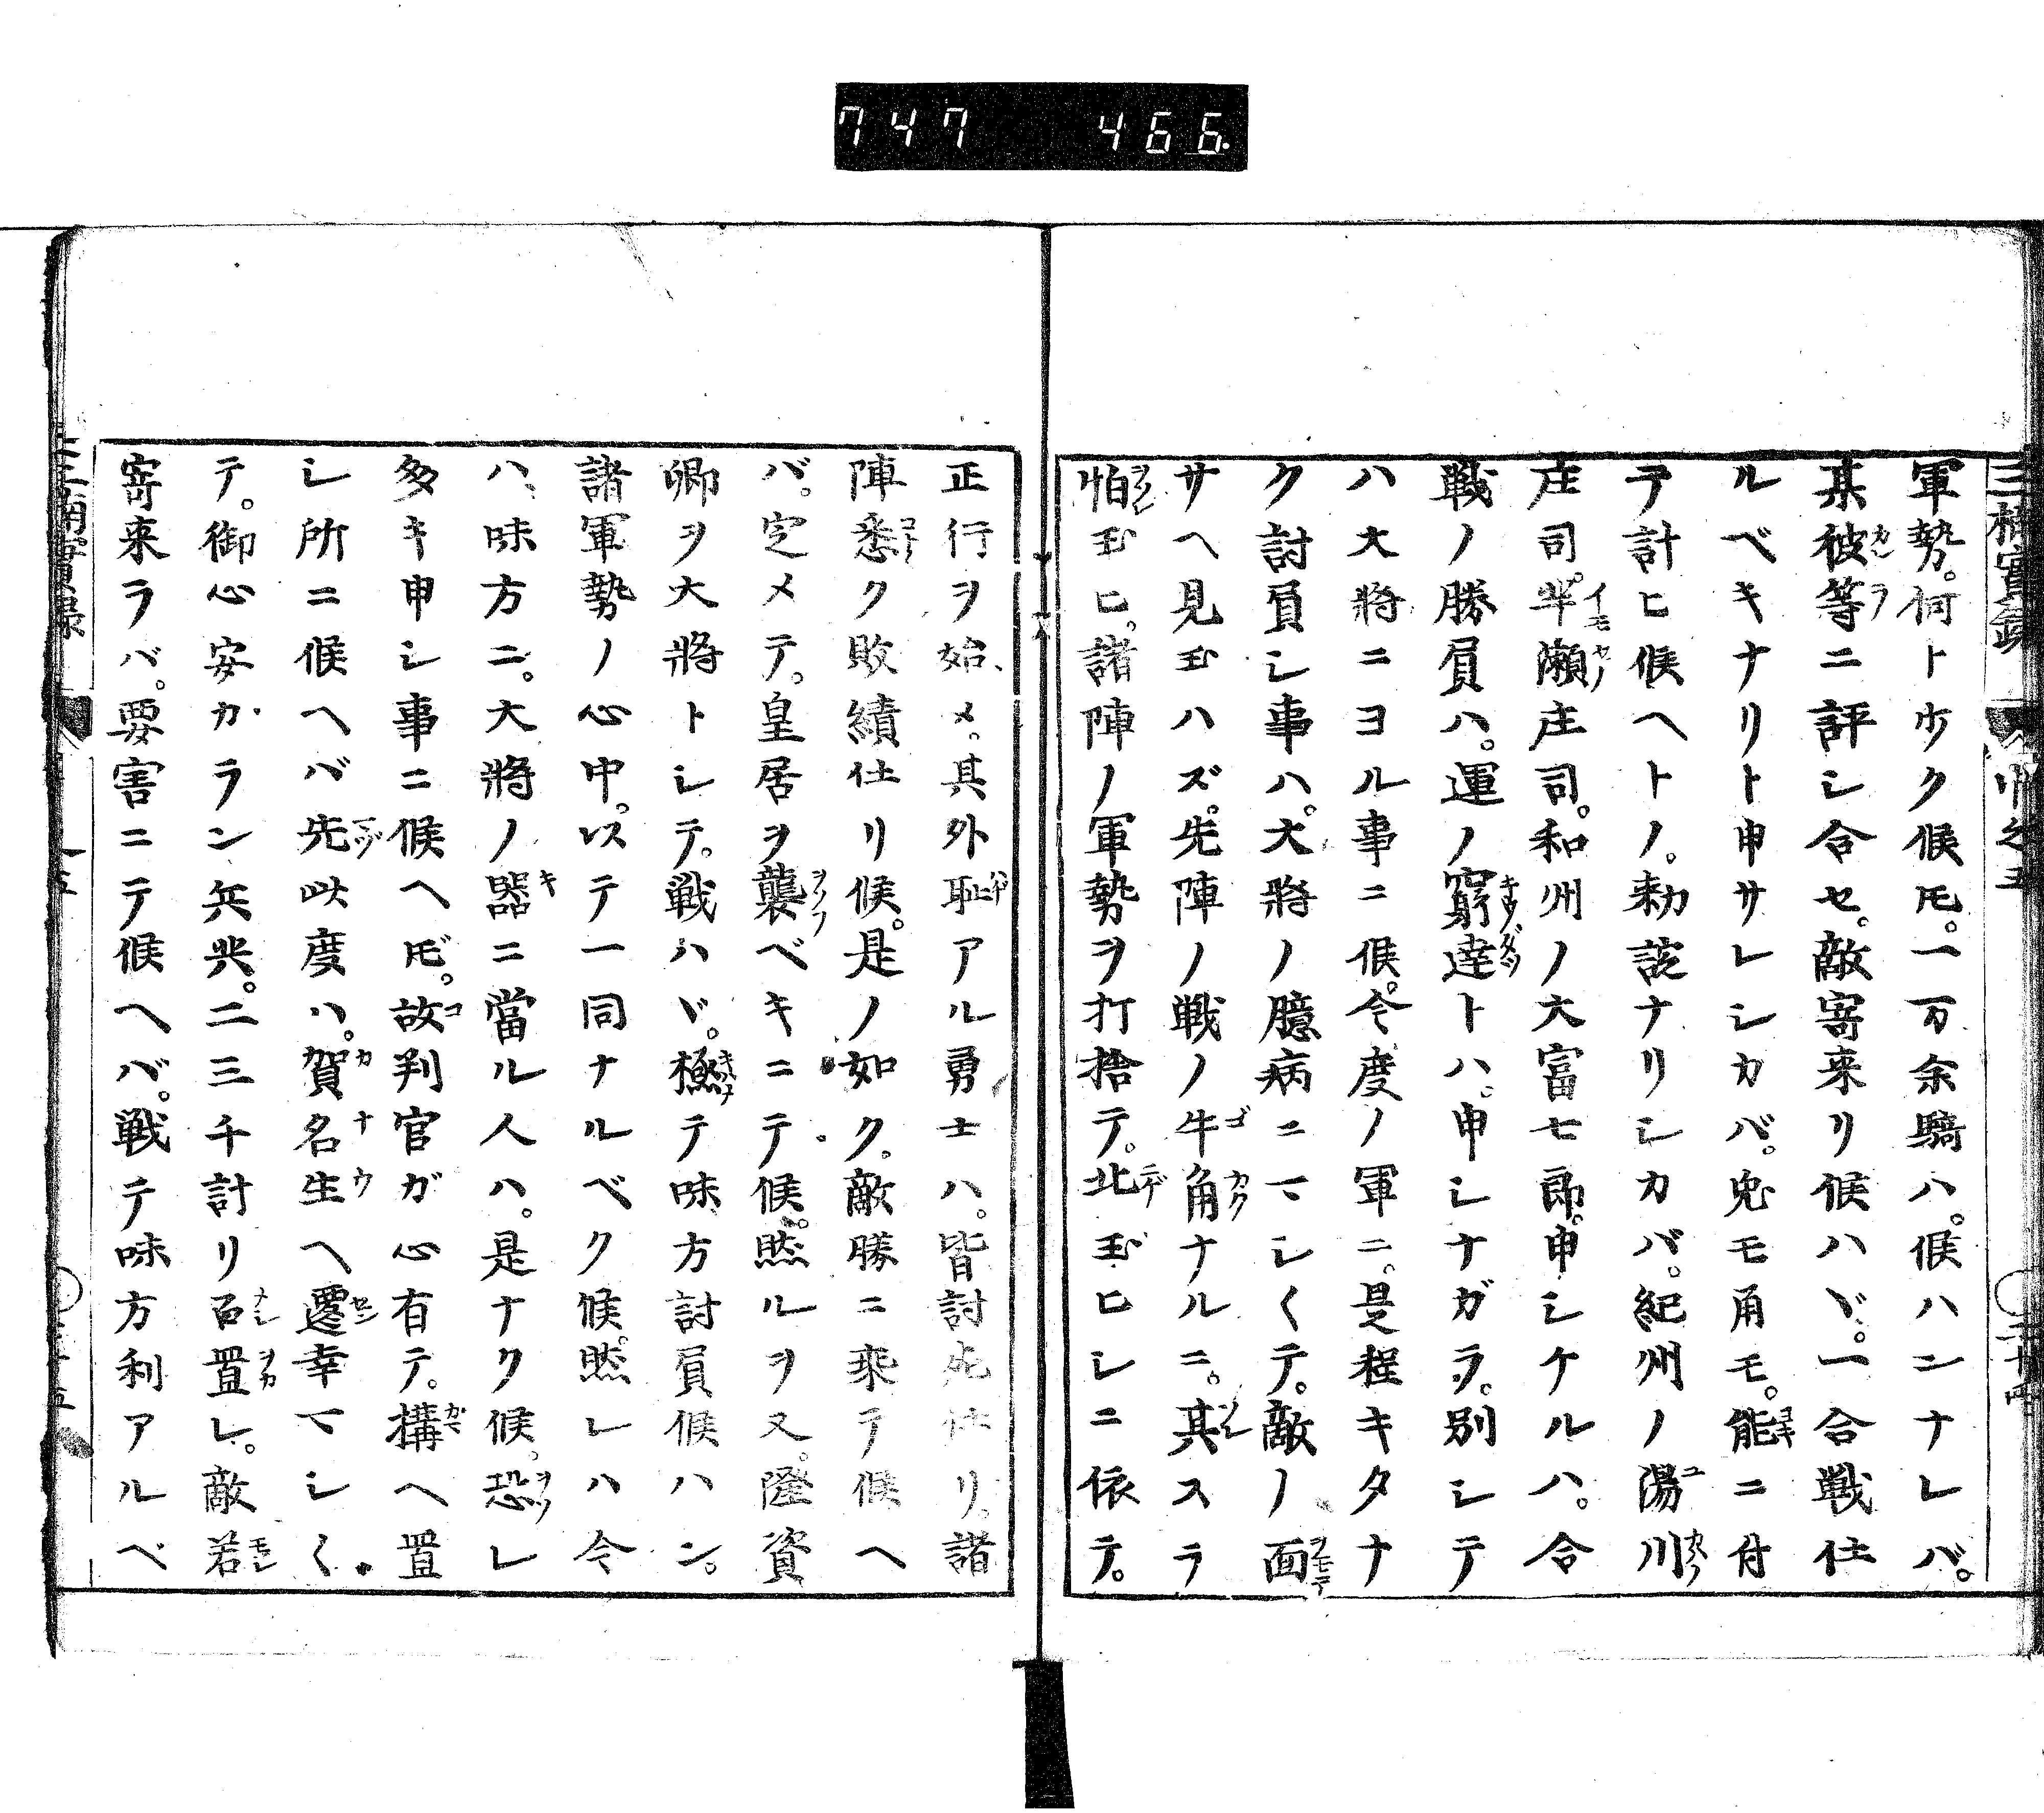 747 466
軍勢。何ト少ク候𪜈。一万余騎ハ。候ハンナレバ。
某彼等ニ評シ合セ。敵寄来リ候ハヾ。一合戦仕
ルベキナリト申サレシカバ。兎モ角モ。能ニ付
テ計ヒ候ヘトノ。勅諚ナリシカバ。紀州ノ湯川
庄司。芋瀬庄司。和州ノ大富七郎。申シケルハ。合
戦ノ勝負ハ。運ノ窮達トハ。申シナガラ。別シテ
ハ大将ニヨル事ニ候。今度ノ軍ニ。是程キタナ
ク討負シ事ハ。大将ノ臆病ニマシ〱テ。敵ノ面
サヘ見玉ハズ。先陣ノ戦ノ牛角ナルニ。其スラ
怕玉ヒ。諸陣ノ軍勢ヲ打捨テ。北玉ヒシニ依テ。
正行ヲ始メ。其外恥アル勇士ハ。皆討死仕リ。諸
陣悉ク敗績仕リ候。是ノ如ク。敵勝ニ乗テ候ヘ
バ。定メテ。皇居ヲ襲ベキニテ候。然ルヲ又。隆資
卿ヲ大将トシテ。戦ハヾ。極テ味方討負候ハン。
諸軍勢ノ心中。以テ一同ナルベク候。然レハ今
ハ、味方ニ。大将ノ器ニ當ル人ハ。是ナク候。恐レ
多キ申シ事ニ候ヘ𪜈。故判官ガ心有テ。構ヘ置
シ所ニ候ヘバ先此度ハ。賀名生ヘ遷幸マシ〱
テ。御心安カラン兵共。二三千計リ召置レ。敵若
寄来ラバ。要害ニテ候ヘバ。戦テ味方利アルベ